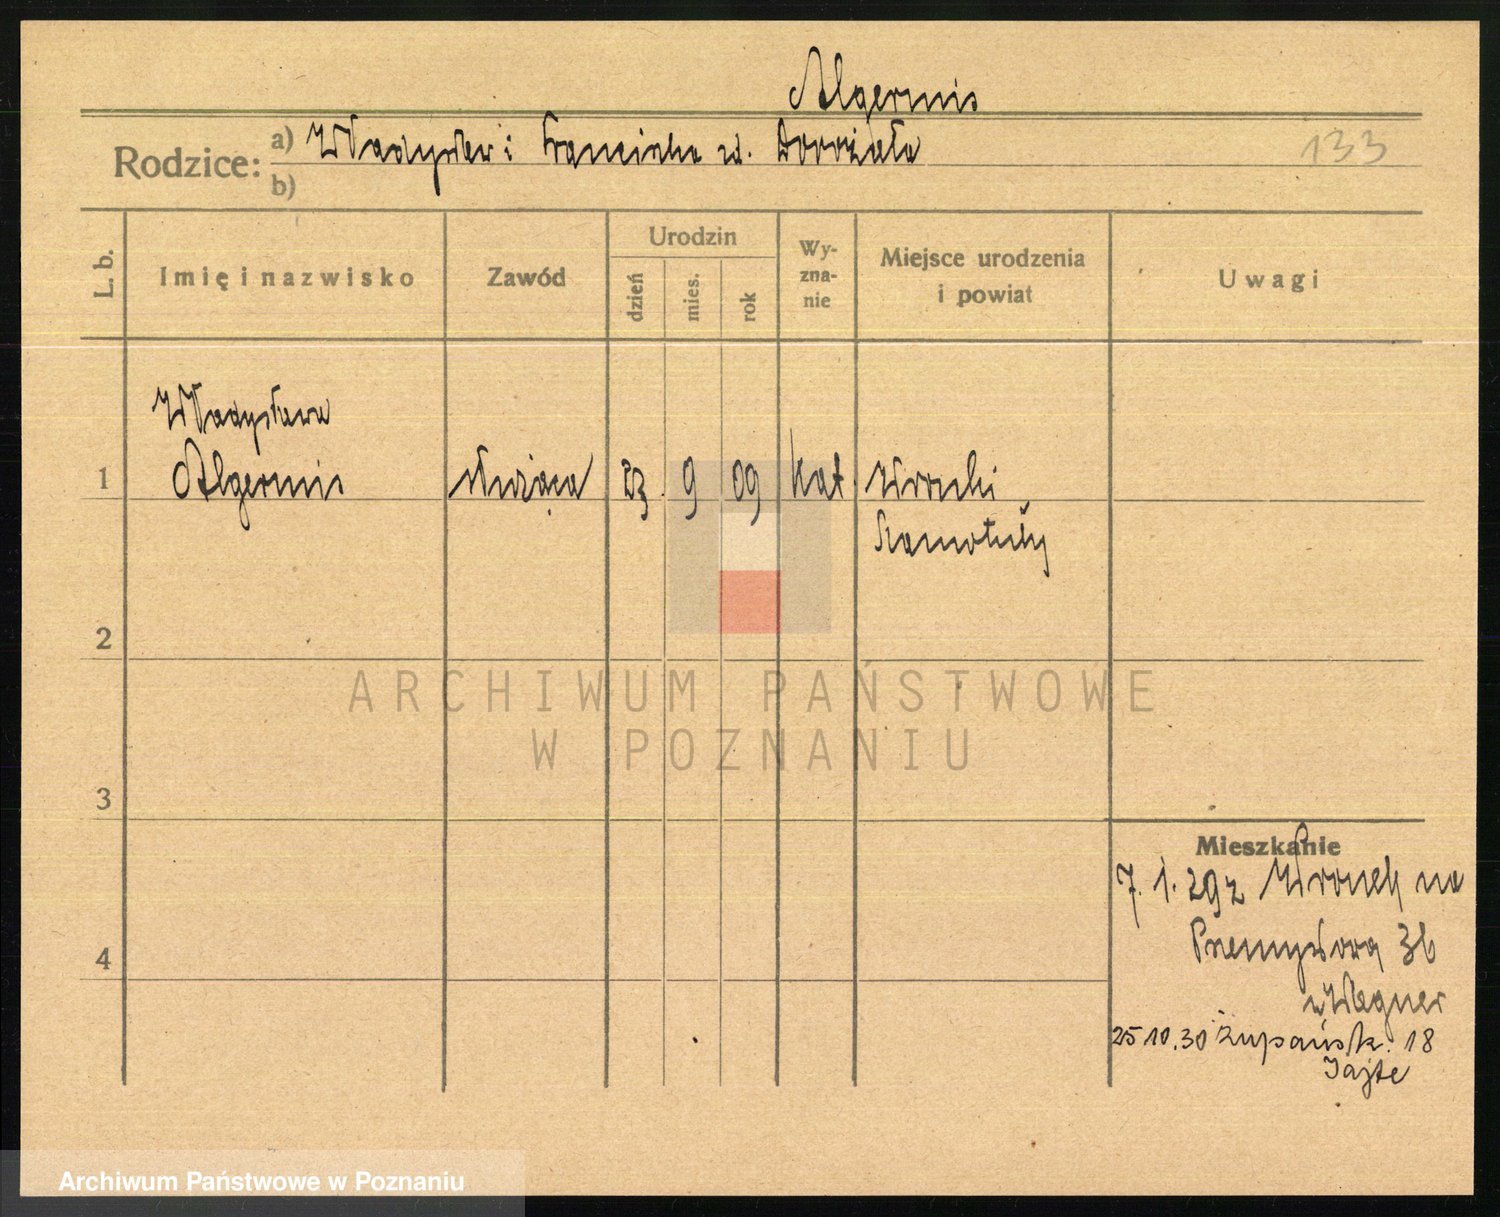 Algermis
Rodzice: a) Władysław i Franciszka ur. Dorożała
133
b)
L. b.
Imię i nazwisko
Zawód
Urodzin
dzień
mies.
rok
Wy-
zna-
nie
Miejsce urodzenia
i powiat
Uwagi
Władysława
1 Algermis służąca 23. 9 09 kat. Wronki
Szamotuły
2
ARCHIWUM PAŃSTWOWE
W POZNANIU
3
Mieszkanie
7. 1. 29 z Wronek na
4 Przemysłową 36
u Wagner
25 10.30 Żupańsk. 18
Jajte
Archiwum Państwowe w Poznaniu